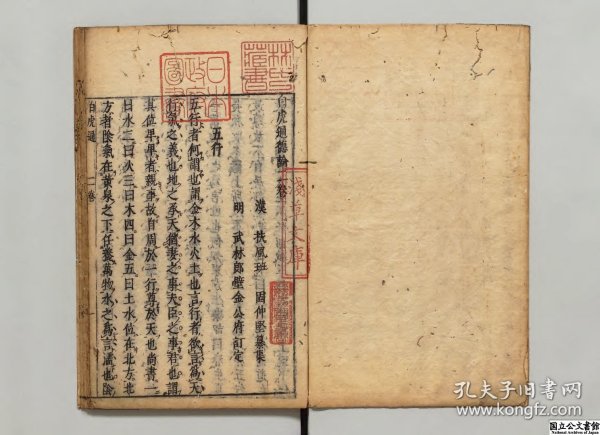 白虎通德論二卷
漢 扶風班 固 仲堅纂集
明 武林郎壁金公府訂定
五行
五行者何謂也謂金木水火土也言行者欲言為天
行氣之義也地之承天猶妻之事夫臣之事君也謂
其位卑卑者親事故自周於一行尊於天也尚書一
曰水二曰火三曰木四曰金五曰土水位在北方北
方者陰氣在黃泉之下任養萬物水之為言濡也陰
白虎通 二卷
日本
政府
圖書
林氏
藏書
淺草文庫
孔夫子旧书网
www.kongfz.com
国立公文書館
National Archives of Japan